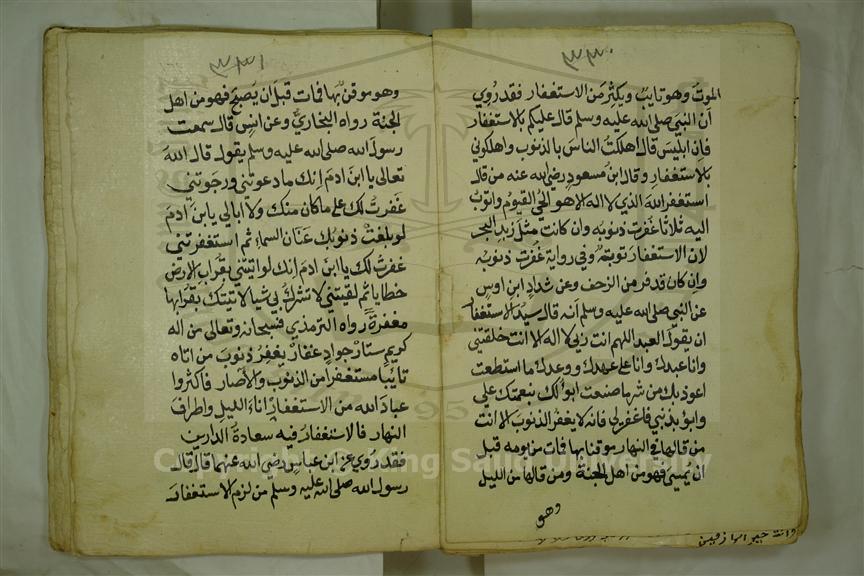 ٣٣٠
الموت وهو تايب ويكثر من الاستغفار فقد روي
أن النبي صلى الله عليه وسلم قال عليكم بالاستغفار
فان ابليس قال اهلكت الناس بالذنوب واهلكوني
بالاستغفار وقال ابن مسعود رضي الله عنه من قال
استغفر الله الذي لا اله الا هو الحي القيوم واتوب
اليه ثلاثا غفرت ذنوبه وان كانت مثل زبد البحر
لان الاستغفار توبة وفي رواية غفرت ذنوبه
وان كان قد فر من الزحف وعن شداد ابن اوس
عن النبي صلى الله عليه وسلم أنه قال سيد الاستغفار
ان يقول العبد اللهم انت ربي لا اله الا انت خلقتني
وانا عبدك وانا على عهدك ووعدك ما استطعت
اعوذ بك من شر ما صنعت ابوء لك بنعمتك علي
وابوء بذنبي فاغفر لي فانه لا يغفر الذنوب الا انت
من قالها في النهار موقنا بها فمات من يومه قبل
ان يمسي فهو من أهل الجنة ومن قالها من الليل
وهو
وانت خير الرازقين
٣٣١
وهو موقن بها فمات قبل أن يصبح فهو من اهل
الجنة رواه البخاري وعن انس قال سمعت
رسول الله صلى الله عليه وسلم يقول قال الله
تعالى يا ابن ادم انك ما دعوتني ورجوتني
غفرت لك على ما كان منك ولا ابالي يا بن ادم
لو بلغت ذنوبك عنان السماء ثم استغفرتني
غفرت لك يا ابن ادم انك لو اتيتني بقراب الارض
خطايا ثم لقيتني لا تشرك بي شيا لاتيتك بقرابها
مغفرة رواه الترمذي فسبحانه وتعالى من اله
كريم ستار جواد غفار يغفر ذنوب من اتاه
تايبا مستغفرا من الذنوب والأصار فاكثروا
عباد الله من الاستغفار اناء الليل واطراف
النهار فالاستغفار فيه سعادة الدارين
فقد روي عن ابن عباس رضي الله عنهما قال قال
رسول الله صلى الله عليه وسلم من لزم الاستغفار
Copyright © King Saud University